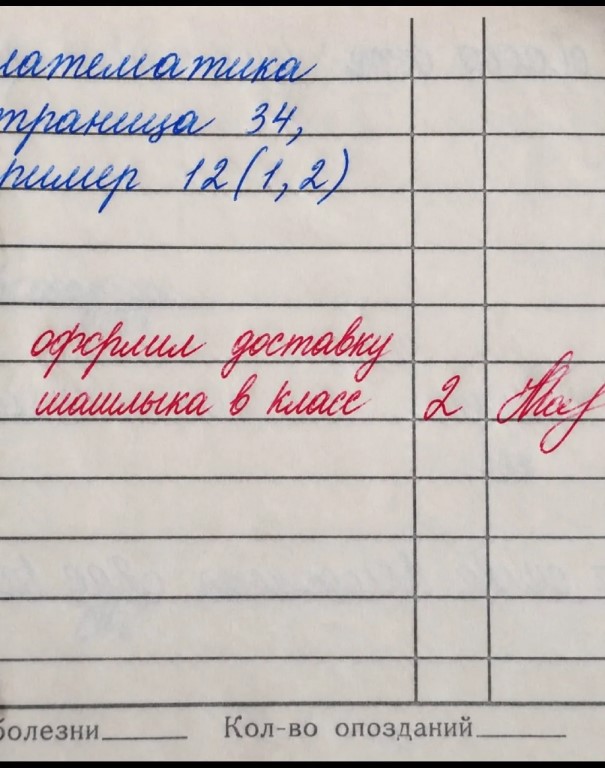 математика
страница 34,
ример 12(1,2)
оформил доставку
шашлыка в класс 2
болезни Кол-во опозданий